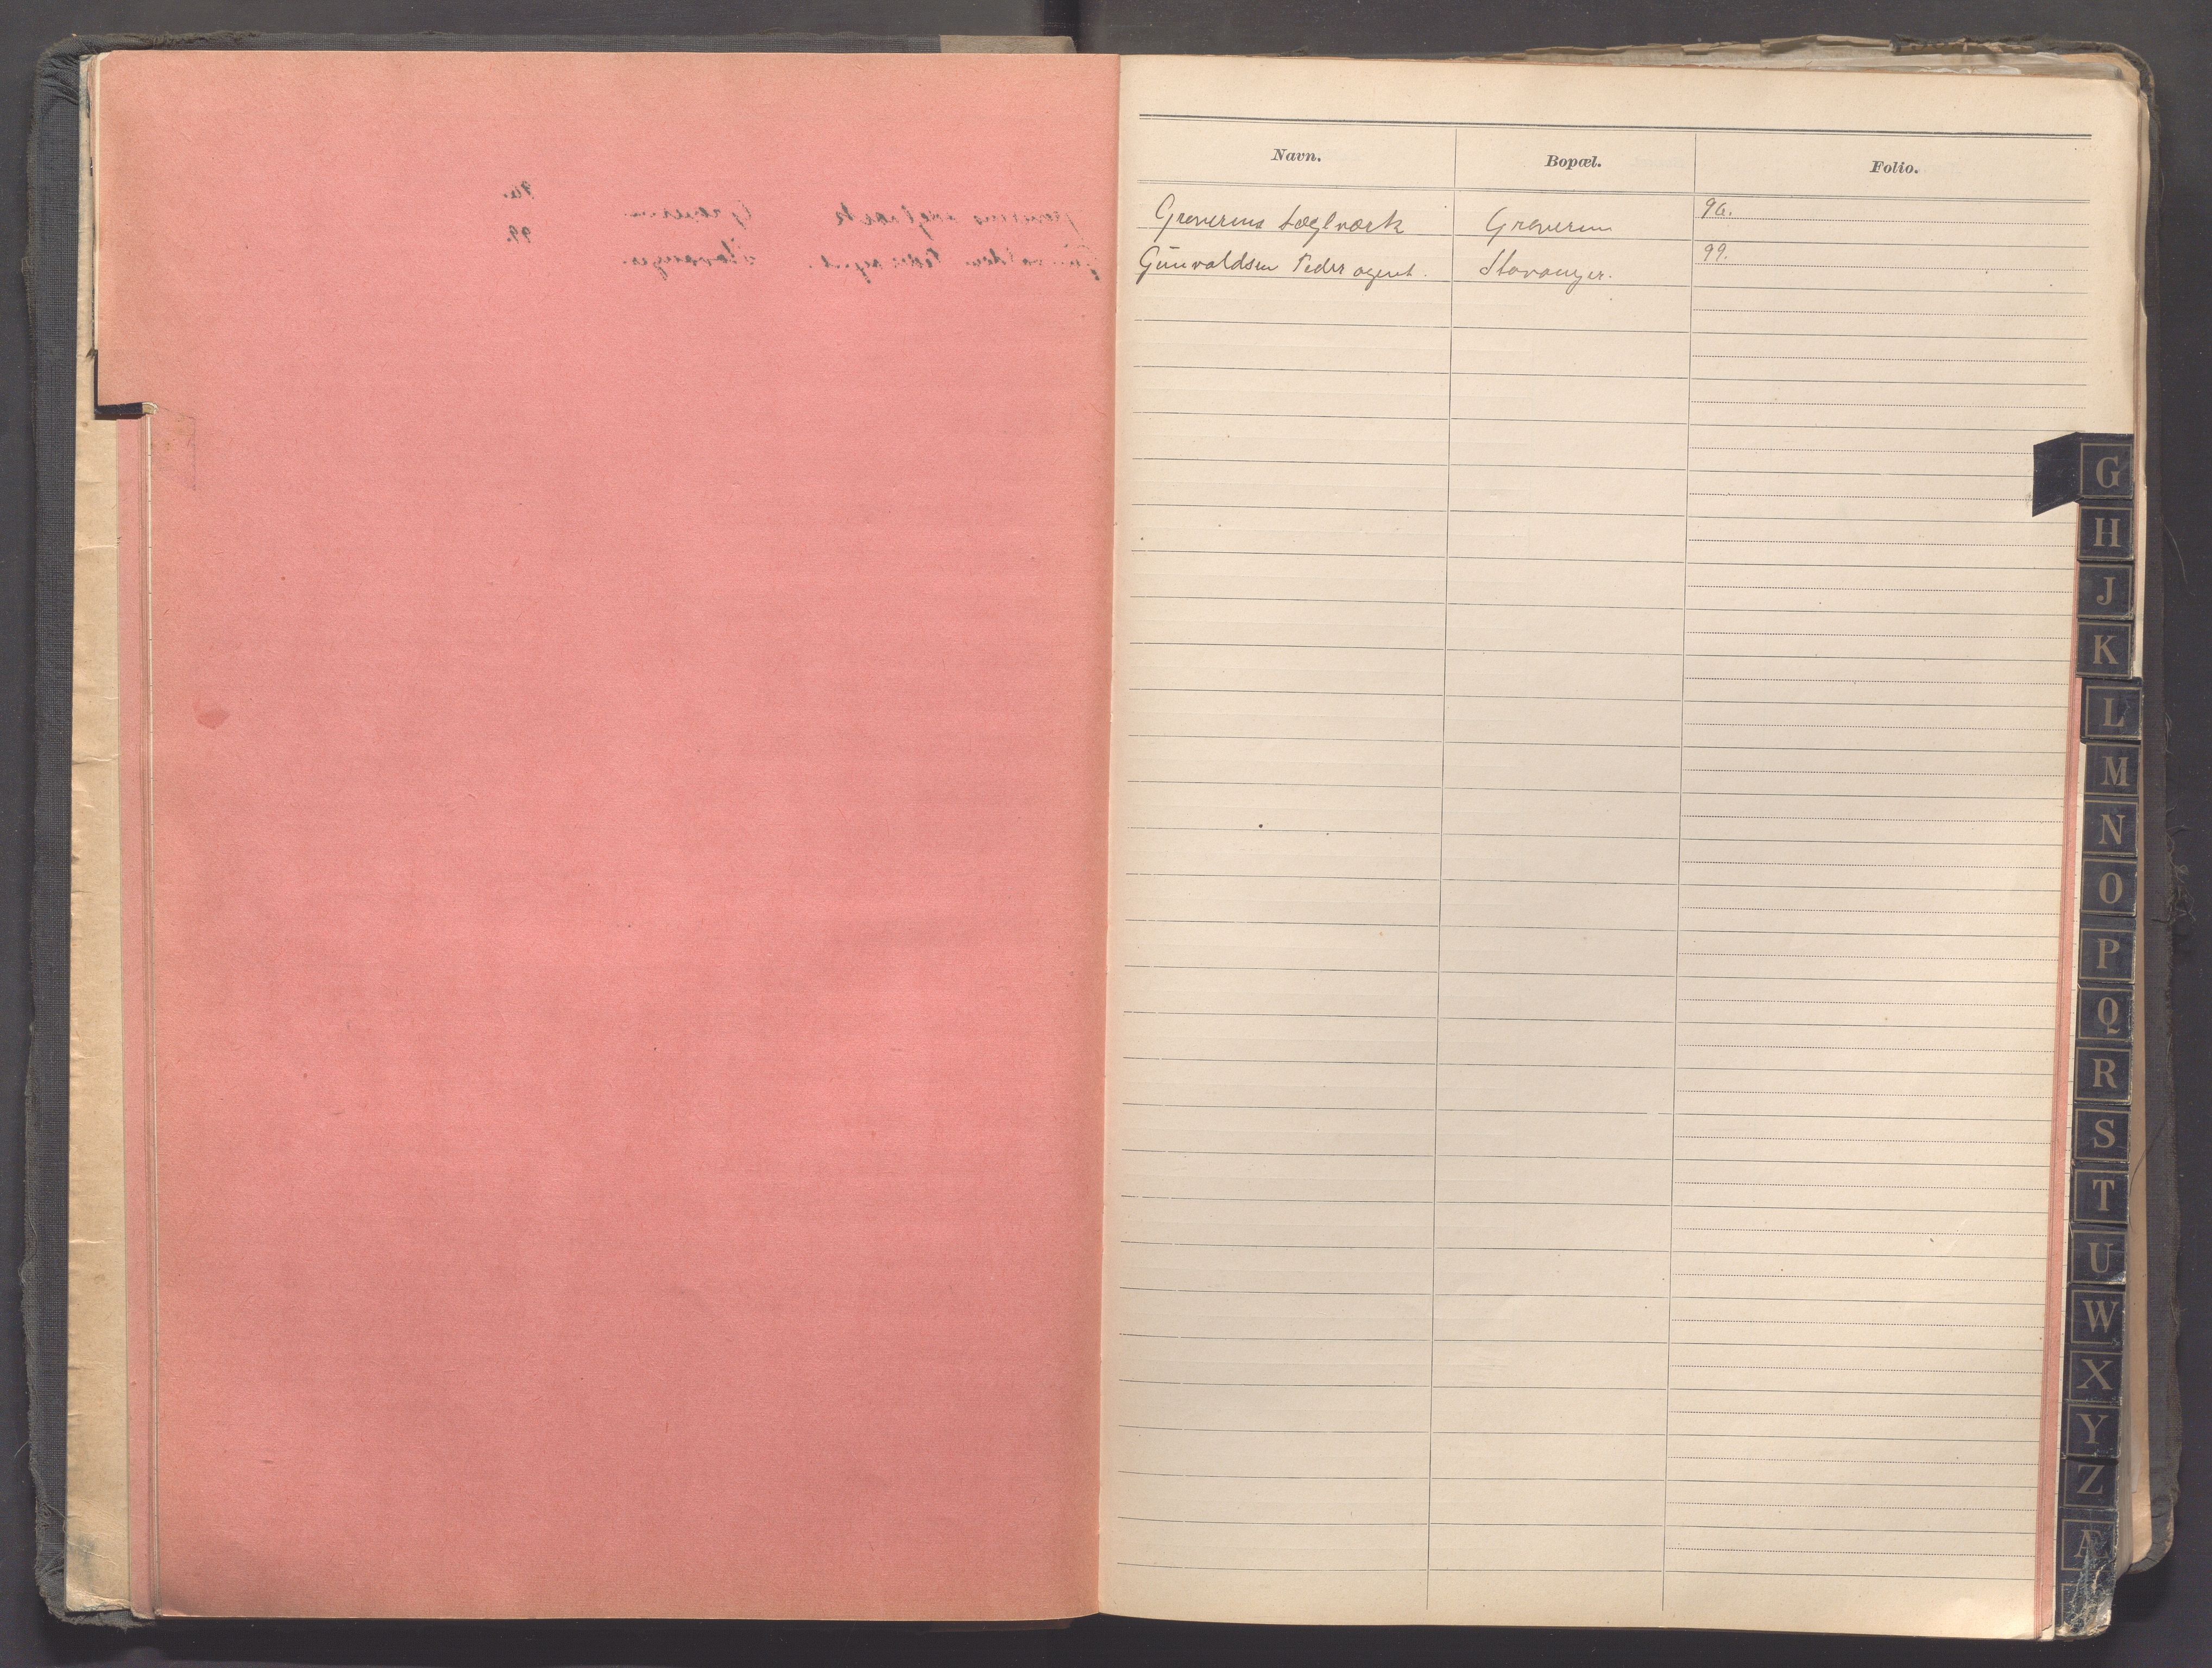 Navn. Bopæl. Folio.
Graverens Teglværk Graveren 96.
Gunvaldsen Peder agent. Stavanger. 99.
G
H
J
K
L
M
N
O
P
Q
R
S
T
U
W
X
Y
Z
Æ